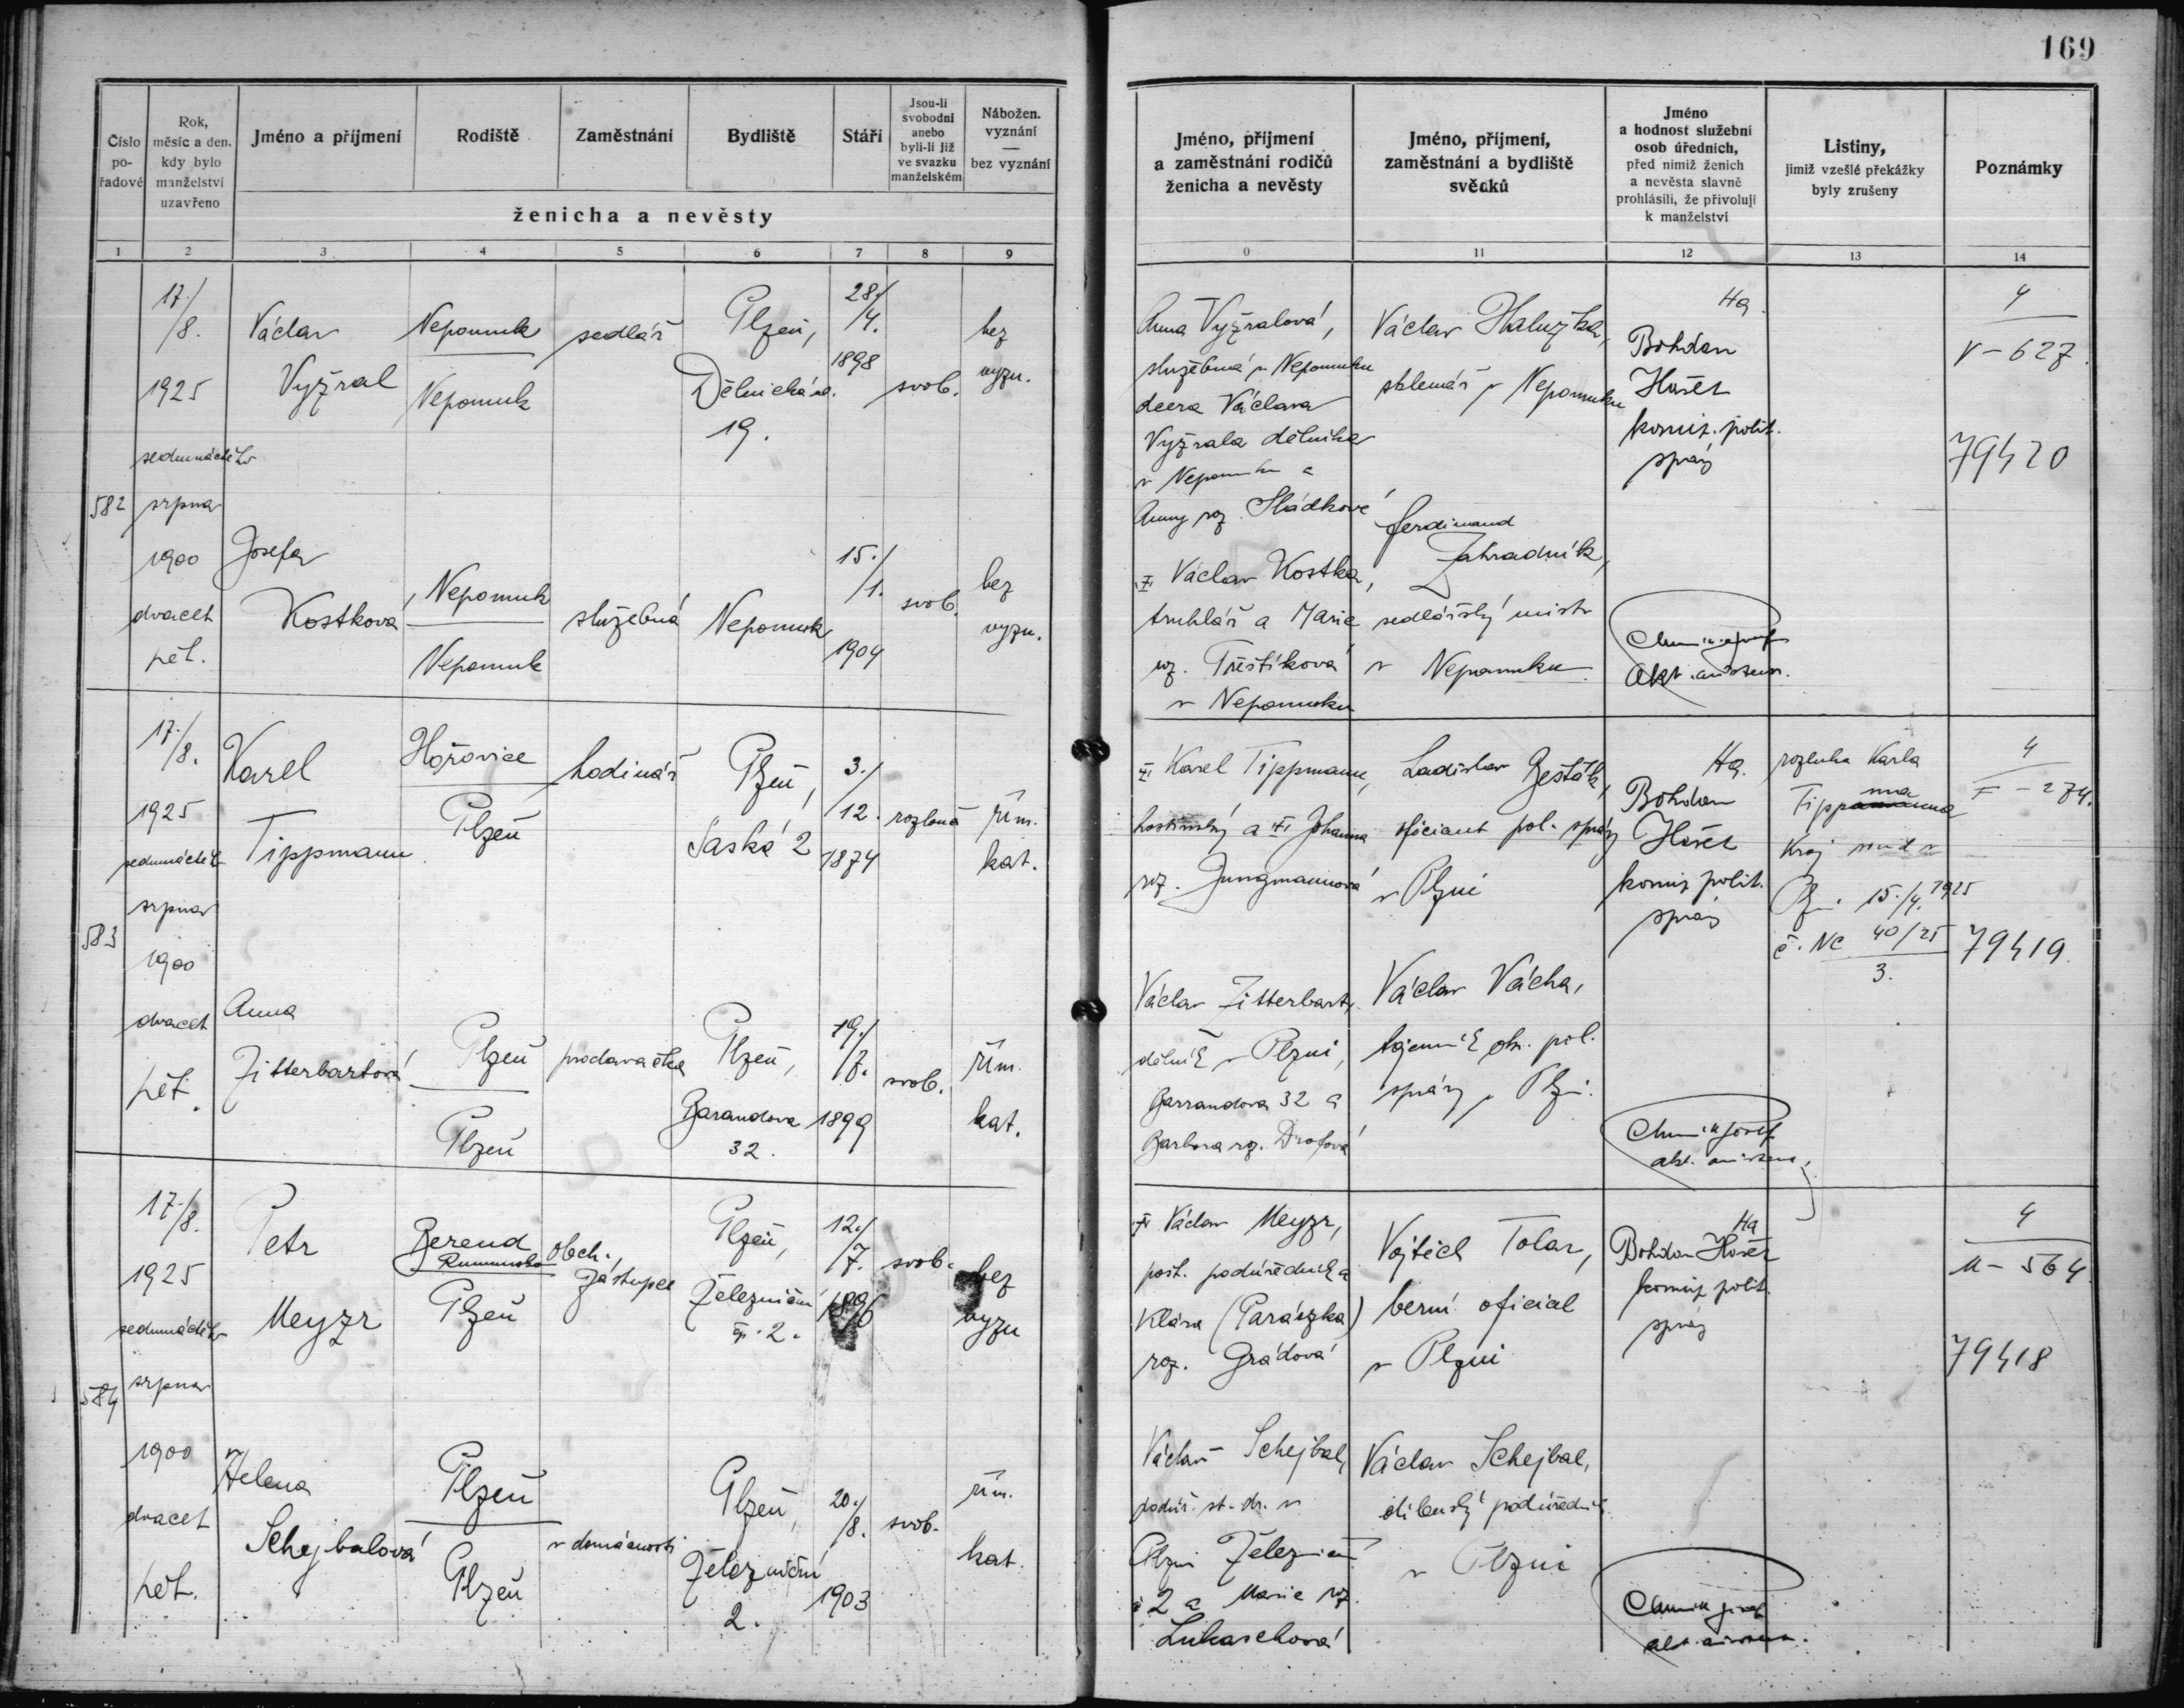 169
Číslo pořadové
Rok, měsíc a den, kdy bylo manželství uzavřeno
Jméno a příjmení
Rodiště
Zaměstnání
Bydliště
Stáří
Jsou-li svobodni anebo byli-li již ve svazku manželském
Nábožen. vyznání — bez vyznání
ženicha a nevěsty
Jméno, příjmení a zaměstnání rodičů ženicha a nevěsty
Jméno, příjmení, zaměstnání a bydliště svědků
Jméno a hodnost služební osob úředních, před nimiž ženich a nevěsta slavně prohlásili, že přivolují k manželství
Listiny, jimiž vzešlé překážky byly zrušeny
Poznámky
1 2 3 4 5 6 7 8 9
0 11 12 13 14
582
17./8.
1925
srpna
1900
dvacet
pět.
Václav
Vyžral
Nepomuk
Nepomuk
sedlář
Plzeň,
Dělnická
19.
28./4.
1898
svob.
bez
vyzn.
Anna Vyžralová,
služebná v Nepomuku
dcera Václava
Vyžrala dělníka
v Nepomuku a
Anny roz. Sládkové
Václav Haluzka,
sklenář v Nepomuku
Bohdan
komis. polit.
správy
4
V-627
79420
Josefa
Kostková
Nepomuk
Nepomuk
služebná
Nepomuk
15./1.
1904
svob.
bez
vyzn.
Václav Kostka,
truhlář a Marie
roz. Třeštíková
v Nepomuku
Ferdinand
Zahradník,
sedlářský mistr
v Nepomuku
583
17./8.
1925
srpna
1900
dvacet
pět.
Karel
Tippmann
Hořovice
Plzeň
hodinář
Plzeň,
Saská 2
3./12.
1874
řím.
kat.
Karel Tippmann,
hostinský a Johanna
roz. Jungmannová
Ladislav
oficiant pol. správy
v Plzni
Bohdan
komis. polit.
správy
rozluka Karla
15./4. 1925
č. Nc 40/25
3.
4
79419
Anna
Zitterbartová
Plzeň
Plzeň
prodavačka
Plzeň,
Barandova
32.
19./7.
1899
svob.
řím.
kat.
Václav Zitterbart,
dělník v Plzni,
Barrandova 32 a
Barbora roz.
Václav Vácha,
tajemník ok. pol.
správy v Plzni.
584
17./8.
1925
srpna
1900
dvacet
pět.
Petr
Meyzr
Berend
Rumunsko
Plzeň
obch.
zástupce
Plzeň,
Železniční
2.
12./7.
1896
svob.
bez
vyzn
Václav Meyzr,
pošt. podúředník a
Klára (Paraszka)
roz. Grádová
Vojtěch Tolar,
berní oficiál
v Plzni
Bohdan
komis. polit.
správy
4
M-564
79418
Helena
Schejbalová
Plzeň
Plzeň
v domácnosti
Plzeň,
Železniční
2.
20./8.
1903
svob.
řím.
kat.
Václav Schejbal,
podúř. st. dr. v
Plzni Železniční
2 a Marie roz.
Lukaschová
Václav Schejbal,
podúředník
v Plzni